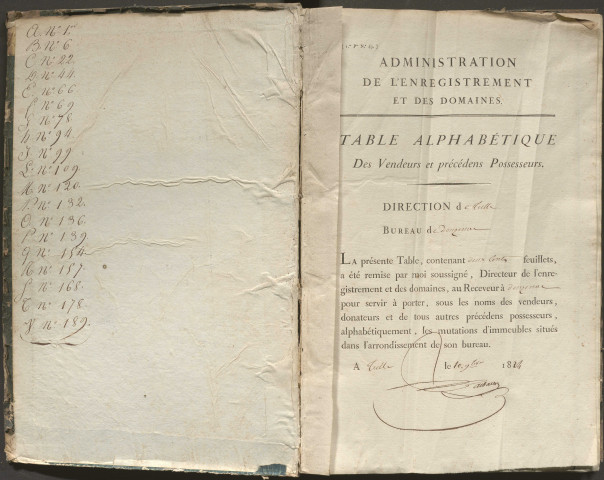 A. nº 1.
B. nº 6
C. nº 22.
D. nº 44.
E. nº 66
f. nº 69
G. nº 78.
H. nº 94.
J. nº 99.
L. nº 109.
M. nº 120.
N. nº 132.
O. nº 136.
P. nº 139
q. nº 154
R. nº 157.
S. nº 168.
T. nº 178.
V. nº 189.
ADMINISTRATION
DE L'ENREGISTREMENT
ET DES DOMAINES.
TABLE ALPHABÉTIQUE
Des Vendeurs et précédens Possesseurs.
DIRECTION de Tulle
BUREAU de
LA présente Table, contenant deux Cents feuillets,
a été remise par moi soussigné, Directeur de l'enre-
gistrement et des domaines, au Receveur à
pour servir à porter, sous les noms des vendeurs,
donateurs et de tous autres précédens possesseurs,
alphabétiquement, les mutations d'immeubles situés
dans l'arrondissement de son bureau.
A Tulle le 1824